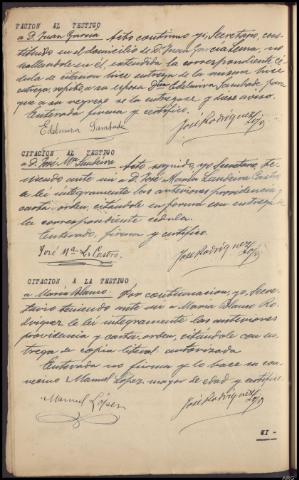 TACION AL TESTIGO
a D. Juan Garcia Acto continuo yo Secretario, cons-
tituido en el domicilio de D. Juan Garcia Lema, no
hallandole en él, extendida la correspondiente cé-
dula de citacion hice entrega de la misma hice
entrega, repito, a su esposa Dña Edelmira Sambade, pa-
que a su regreso se la entregara y diese aviso.
Enterada firma y certifico.
Edelmira Sambade
José Rodriguez
CITACION AL TESTIGO
a D. José Mª Landeira Acto seguido, yo Secretario, te-
niendo ante mi a D. José Maria Landeira Castro
le lei integramente las anteriores providencia y
carta-orden, citándole en forma con entrega de
la correspondiente cédula.
Enterado, firma y certifico.
José Mª L. Castro
José Rodriguez
CITACION A LA TESTIGO
a Maria Blanco A continuacion, yo, Secre-
tario teniendo ante mi a Maria Blanco Ro-
driguez le lei integramente las anteriores
providencia y carta orden, citándole con en-
trega de copia literal autorizada.
Enterada no firma y lo hace su con-
vecino Manuel Lopez mayor de edad y certifico.
Manuel López
José Rodriguez